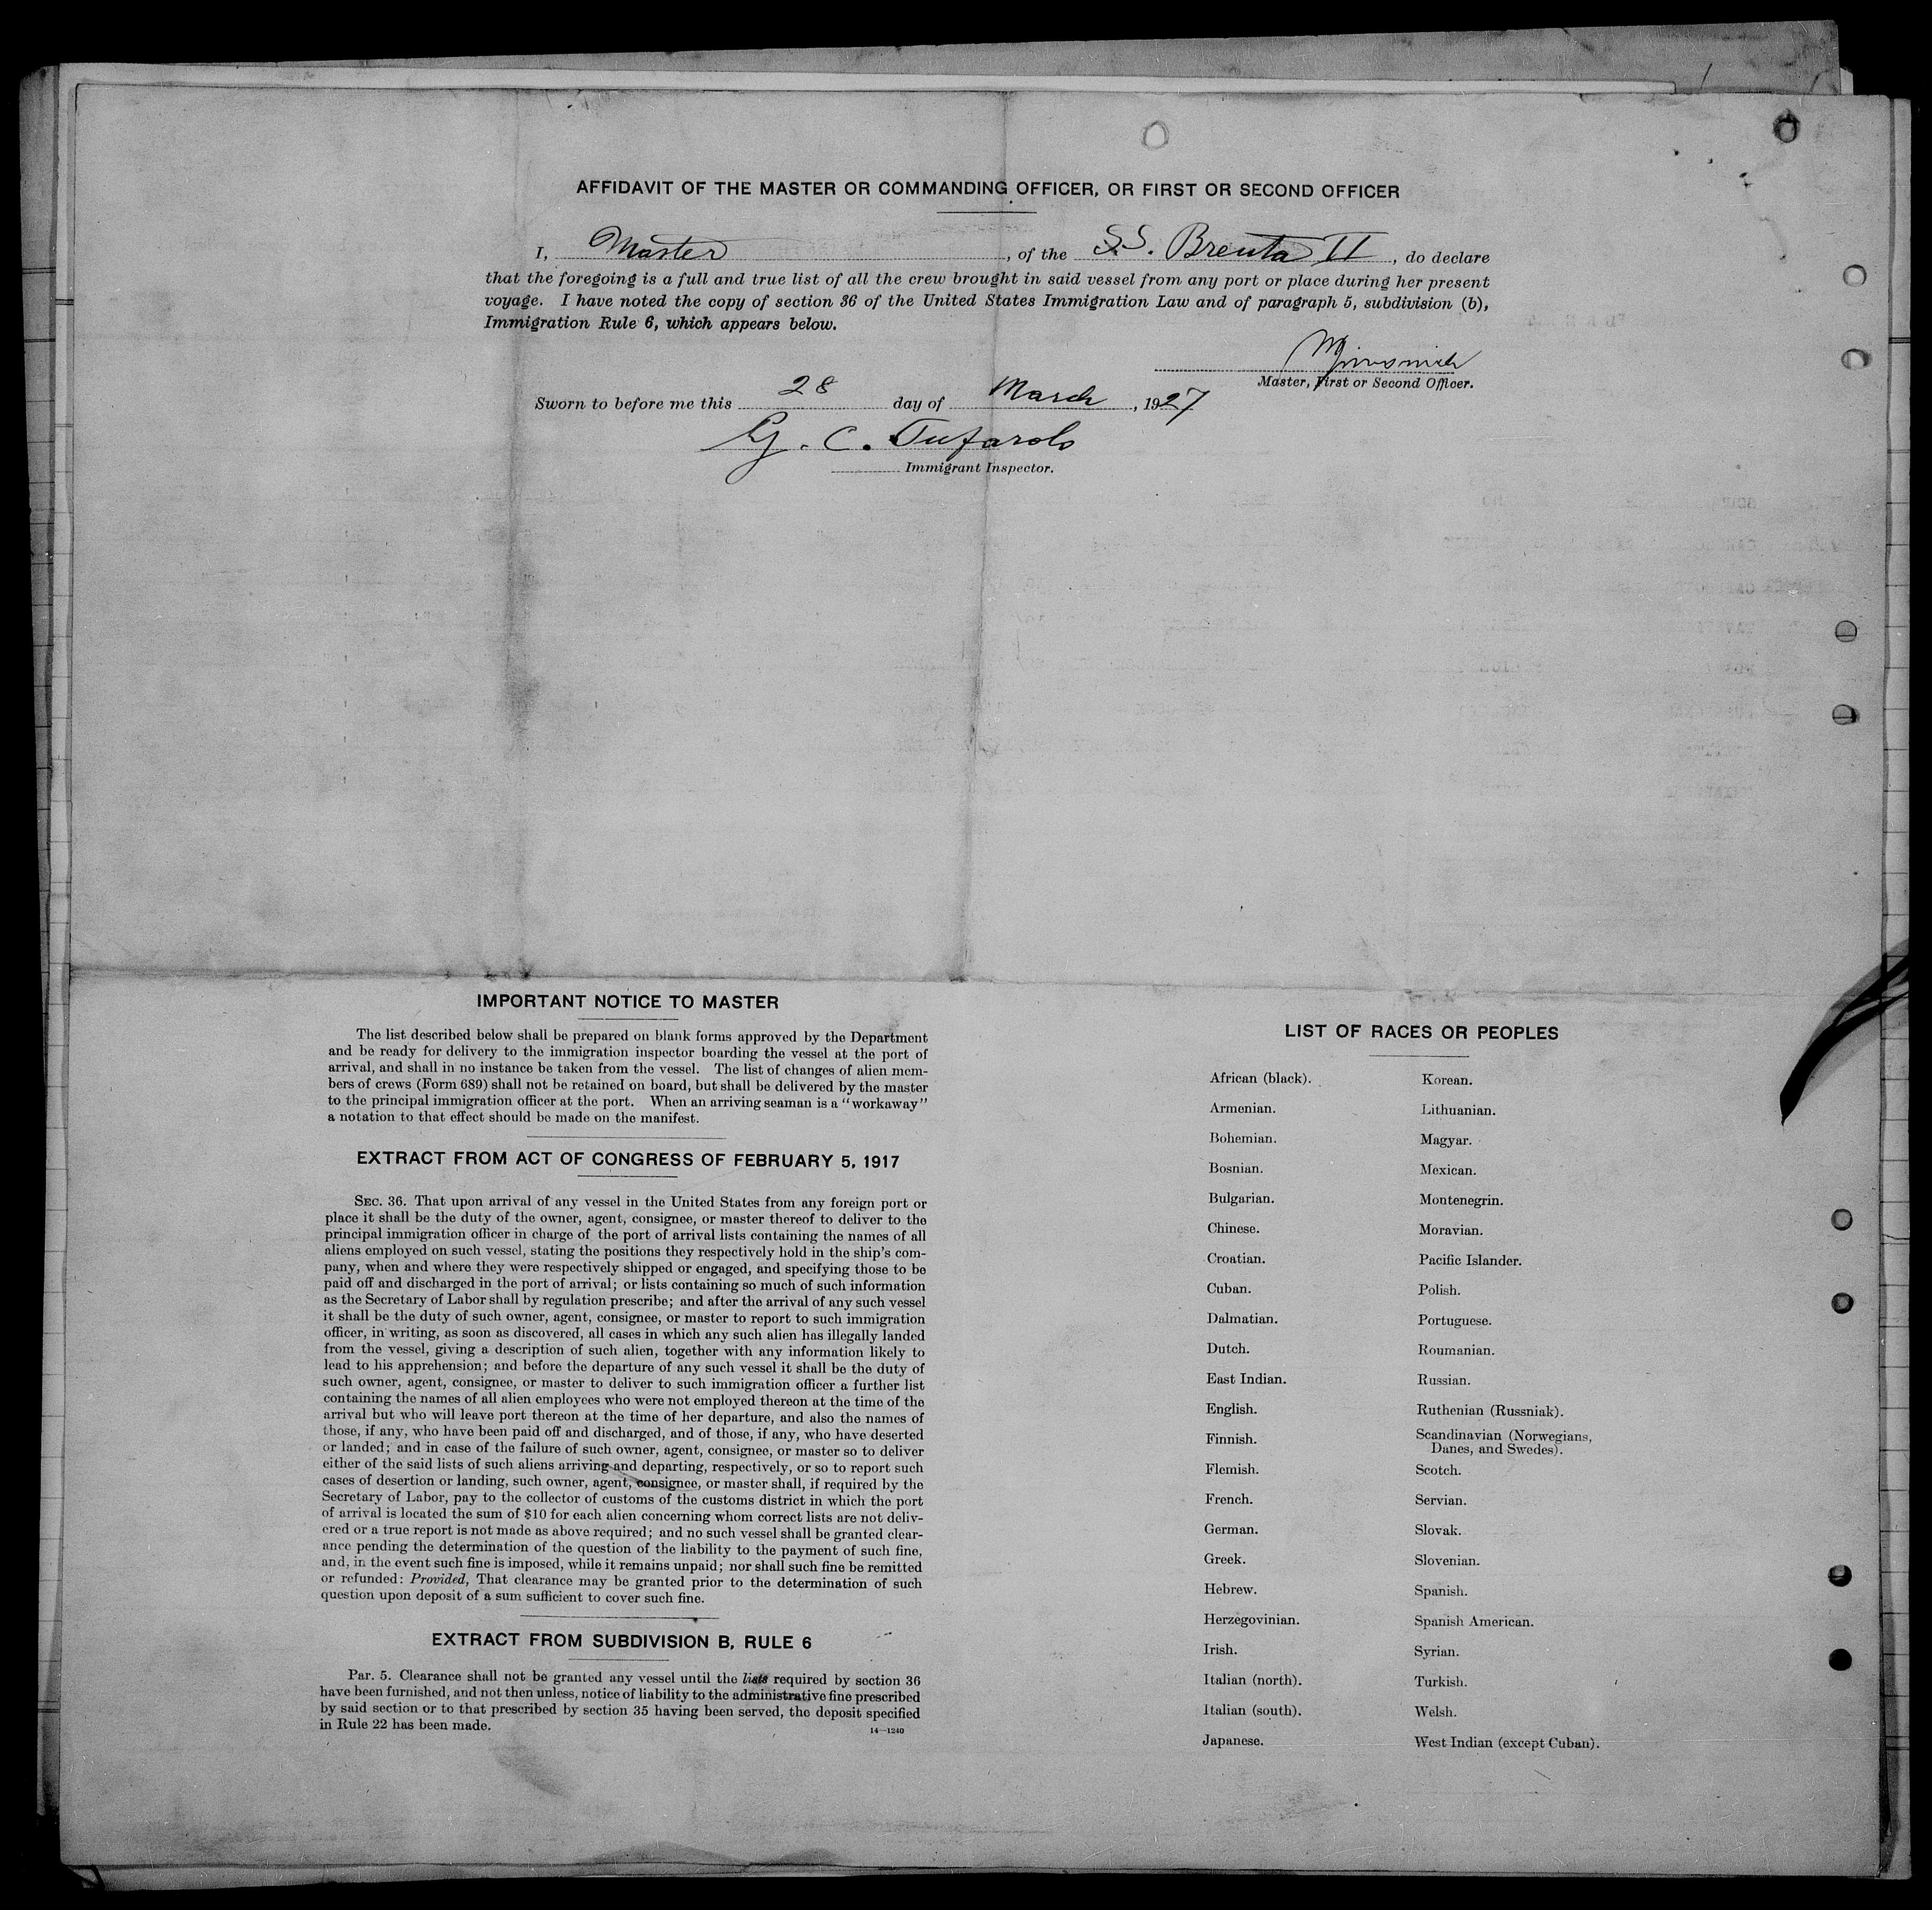 AFFIDAVIT OF THE MASTER OR COMMANDING OFFICER, OR FIRST OR SECOND OFFICER
I, Master, of the SS. Brenta II, do declare
that the foregoing is a full and true list of all the crew brought in said vessel from any port or place during her present
voyage. I have noted the copy of section 36 of the United States Immigration Law and of paragraph 5, subdivision (b),
Immigration Rule 6, which appears below.
Master, First or Second Officer.
Sworn to before me this 28 day of March, 1927
G. C. Tufarolo
Immigrant Inspector.
IMPORTANT NOTICE TO MASTER
The list described below shall be prepared on blank forms approved by the Department
and be ready for delivery to the immigration inspector boarding the vessel at the port of
arrival, and shall in no instance be taken from the vessel. The list of changes of alien mem-
bers of crews (Form 689) shall not be retained on board, but shall be delivered by the master
to the principal immigration officer at the port. When an arriving seaman is a "workaway"
a notation to that effect should be made on the manifest.
EXTRACT FROM ACT OF CONGRESS OF FEBRUARY 5, 1917
SEC. 36. That upon arrival of any vessel in the United States from any foreign port or
place it shall be the duty of the owner, agent, consignee, or master thereof to deliver to the
principal immigration officer in charge of the port of arrival lists containing the names of all
aliens employed on such vessel, stating the positions they respectively hold in the ship's com-
pany, when and where they were respectively shipped or engaged, and specifying those to be
paid off and discharged in the port of arrival; or lists containing so much of such information
as the Secretary of Labor shall by regulation prescribe; and after the arrival of any such vessel
it shall be the duty of such owner, agent, consignee, or master to report to such immigration
officer, in writing, as soon as discovered, all cases in which any such alien has illegally landed
from the vessel, giving a description of such alien, together with any information likely to
lead to his apprehension; and before the departure of any such vessel it shall be the duty of
such owner, agent, consignee, or master to deliver to such immigration officer a further list
containing the names of all alien employees who were not employed thereon at the time of the
arrival but who will leave port thereon at the time of her departure, and also the names of
those, if any, who have been paid off and discharged, and of those, if any, who have deserted
or landed; and in case of the failure of such owner, agent, consignee, or master so to deliver
either of the said lists of such aliens arriving and departing, respectively, or so to report such
cases of desertion or landing, such owner, agent, consignee, or master shall, if required by the
Secretary of Labor, pay to the collector of customs of the customs district in which the port
of arrival is located the sum of $10 for each alien concerning whom correct lists are not deliv-
ered or a true report is not made as above required; and no such vessel shall be granted clear-
ance pending the determination of the question of the liability to the payment of such fine,
and, in the event such fine is imposed, while it remains unpaid; nor shall such fine be remitted
or refunded: Provided, That clearance may be granted prior to the determination of such
question upon deposit of a sum sufficient to cover such fine.
EXTRACT FROM SUBDIVISION B, RULE 6
Par. 5. Clearance shall not be granted any vessel until the lists required by section 36
have been furnished, and not then unless, notice of liability to the administrative fine prescribed
by said section or to that prescribed by section 35 having been served, the deposit specified
in Rule 22 has been made.
14—1240
LIST OF RACES OR PEOPLES
African (black).
Armenian.
Bohemian.
Bosnian.
Bulgarian.
Chinese.
Croatian.
Cuban.
Dalmatian.
Dutch.
East Indian.
English.
Finnish.
Flemish.
French.
German.
Greek.
Hebrew.
Herzegovinian.
Irish.
Italian (north).
Italian (south).
Japanese.
Korean.
Lithuanian.
Magyar.
Mexican.
Montenegrin.
Moravian.
Pacific Islander.
Polish.
Portuguese.
Roumanian.
Russian.
Ruthenian (Russniak).
Scandinavian (Norwegians,
Danes, and Swedes).
Scotch.
Servian.
Slovak.
Slovenian.
Spanish.
Spanish American.
Syrian.
Turkish.
Welsh.
West Indian (except Cuban).